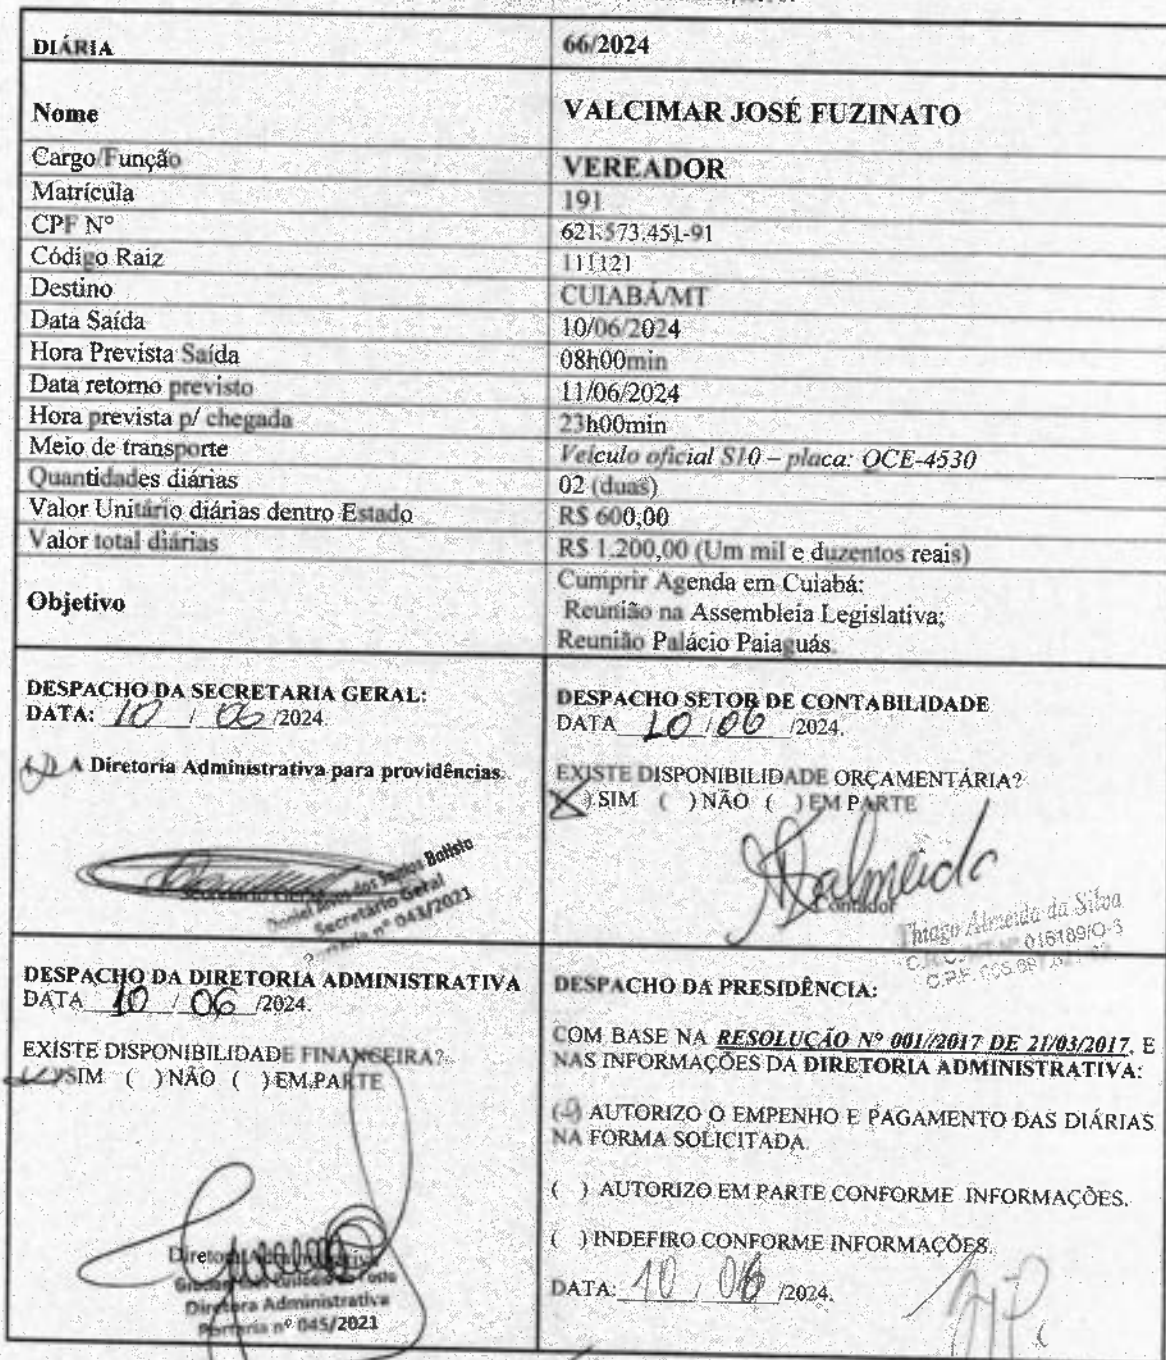 DIÁRIA 66/2024
Nome VALCIMAR JOSÉ FUZINATO
Cargo/Função VEREADOR
Matrícula 191
CPF Nº 621.573.451-91
Código Raiz 111121
Destino CUIABÁ/MT
Data Saída 10/06/2024
Hora Prevista Saída 08h00min
Data retorno previsto 11/06/2024
Hora prevista p/ chegada 23h00min
Meio de transporte Veículo oficial S10 – placa: OCE-4530
Quantidades diárias 02 (duas)
Valor Unitário diárias dentro Estado R$ 600,00
Valor total diárias R$ 1.200,00 (Um mil e duzentos reais)
Objetivo
Cumprir Agenda em Cuiabá:
Reunião na Assembleia Legislativa;
Reunião Palácio Paiaguás.
DESPACHO DA SECRETARIA GERAL:
DATA: 10 / 06 /2024.
( ) A Diretoria Administrativa para providências.
Secretário Geral
Daniel dos Santos Batista
Secretário Geral
Portaria nº 043/2021
DESPACHO SETOR DE CONTABILIDADE
DATA 10 / 06 /2024.
EXISTE DISPONIBILIDADE ORÇAMENTÁRIA?
(X) SIM ( ) NÃO ( ) EM PARTE
Almeida
Contador
Thiago Almeida da Silva
016189/O-3
C.P.F.
DESPACHO DA DIRETORIA ADMINISTRATIVA
DATA 10 / 06 /2024.
EXISTE DISPONIBILIDADE FINANCEIRA?
( ) SIM ( ) NÃO ( ) EM PARTE
Diretora Administrativa
Diretora Administrativa
Portaria nº 045/2021
DESPACHO DA PRESIDÊNCIA:
COM BASE NA RESOLUÇÃO Nº 001//2017 DE 21/03/2017, E
NAS INFORMAÇÕES DA DIRETORIA ADMINISTRATIVA:
( ) AUTORIZO O EMPENHO E PAGAMENTO DAS DIÁRIAS
NA FORMA SOLICITADA.
( ) AUTORIZO EM PARTE CONFORME INFORMAÇÕES.
( ) INDEFIRO CONFORME INFORMAÇÕES.
DATA: 10 / 06 /2024.